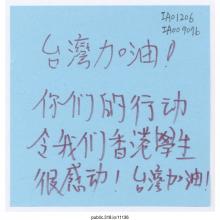 IA01206
IA009096
台灣加油!
你们的行动
令我们香港學生
很感动! 台灣加油!
public.318.io/11136